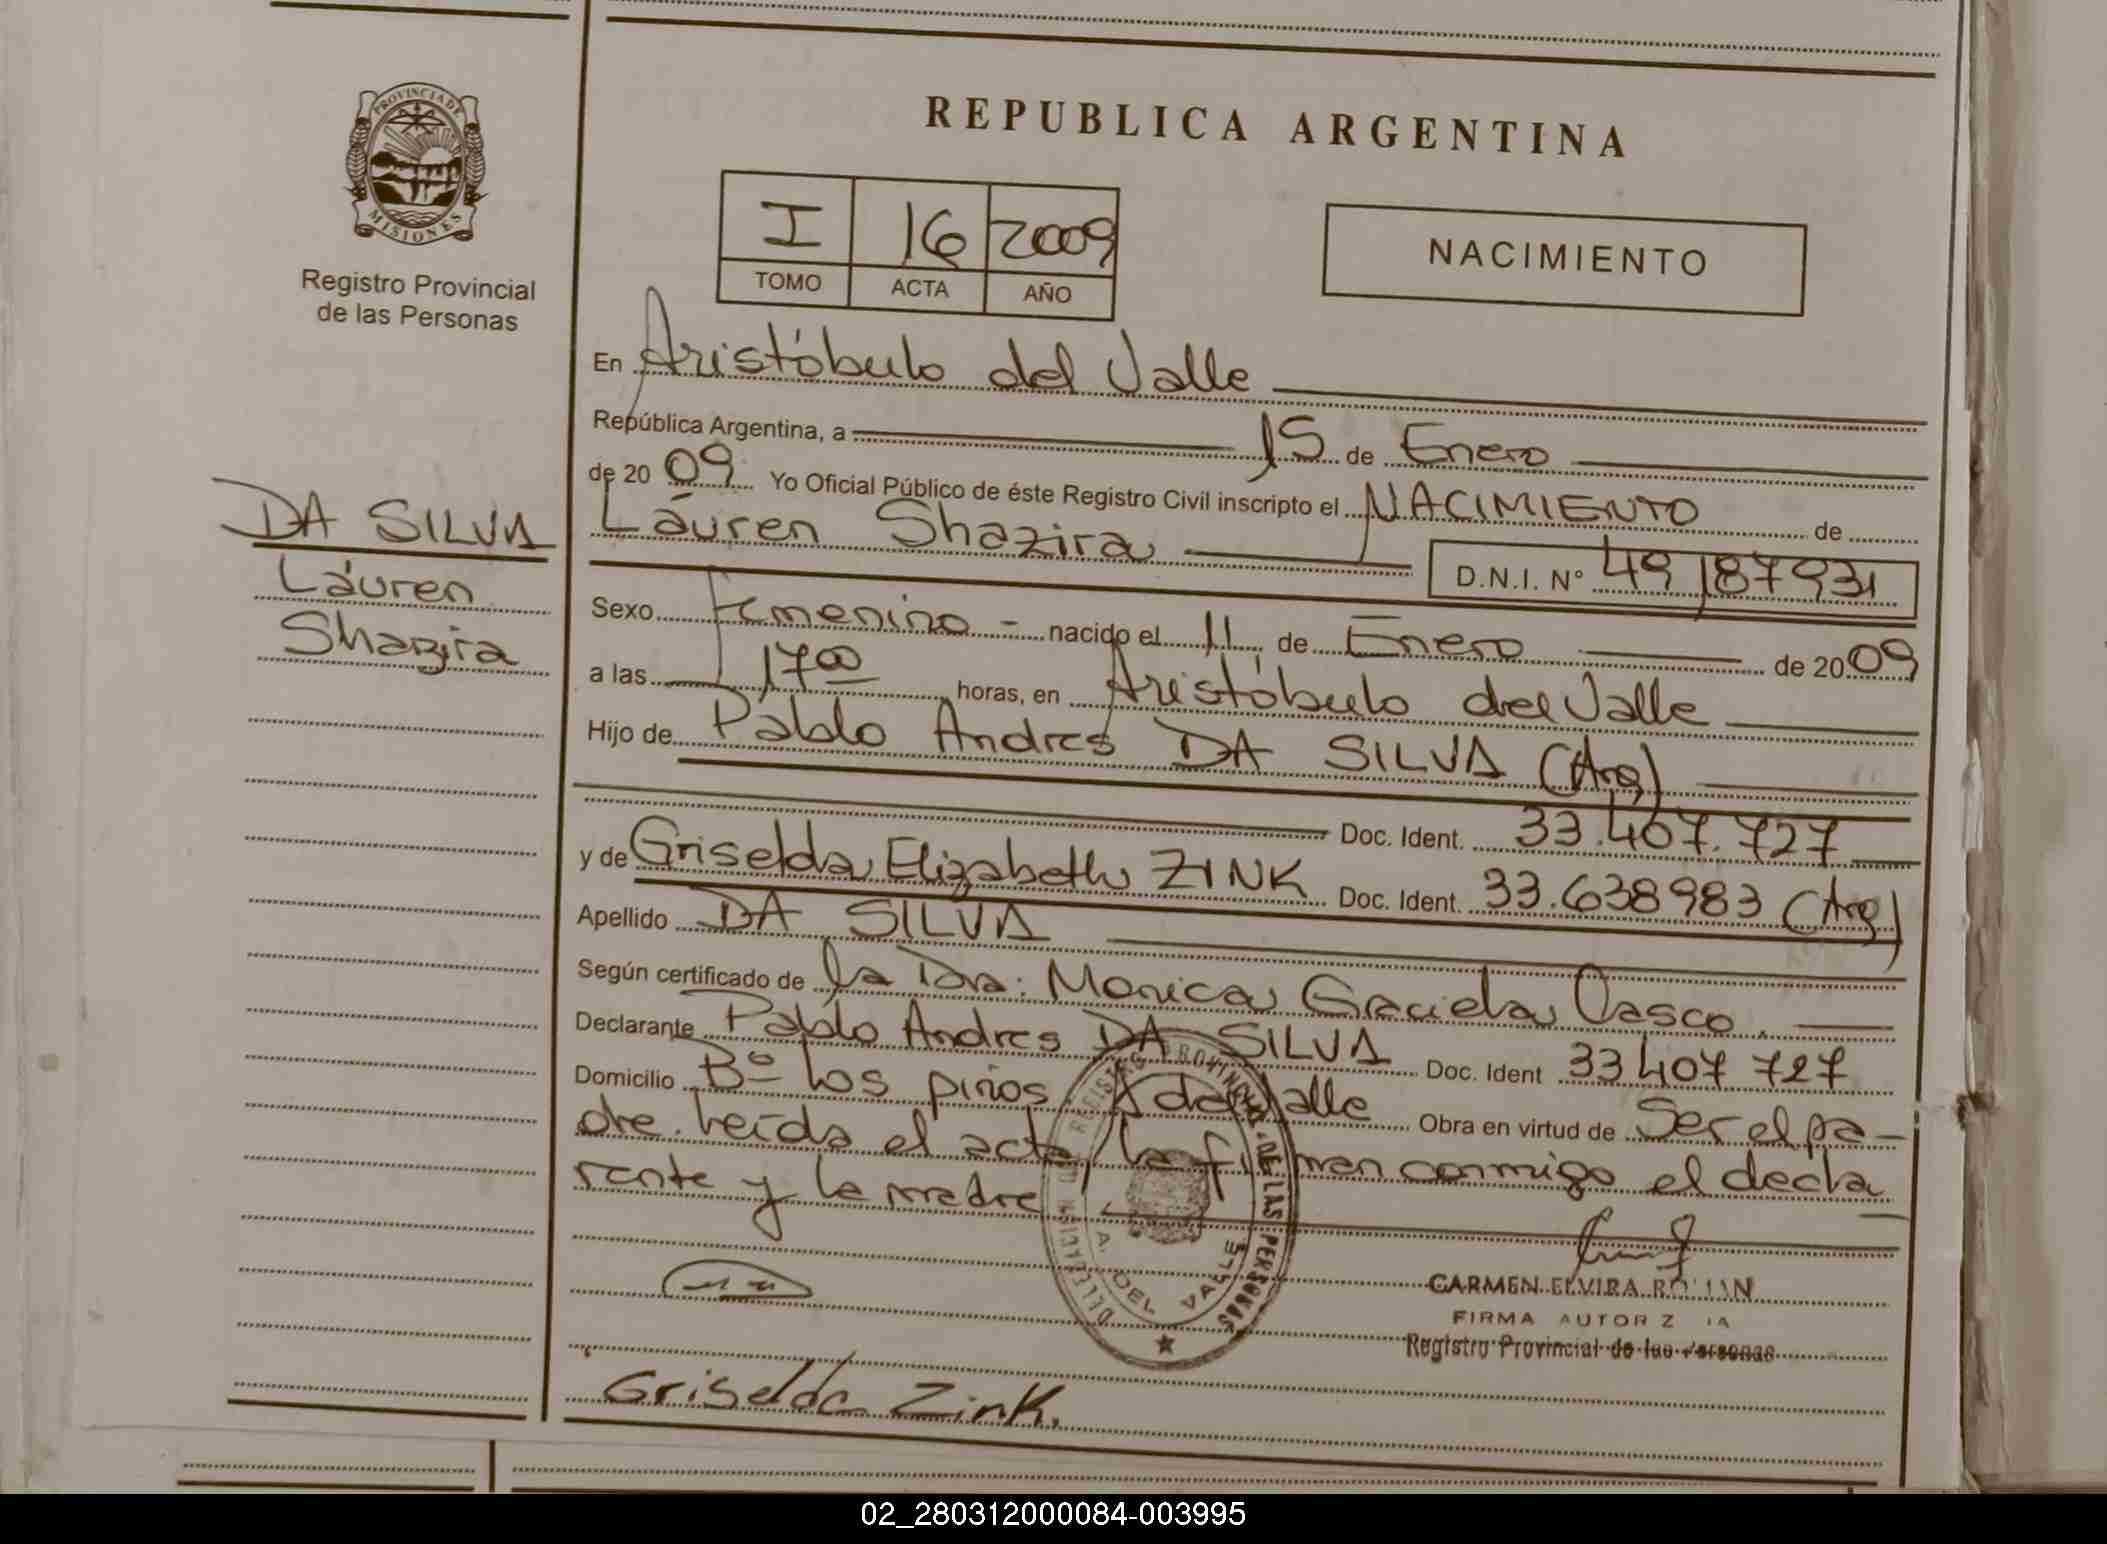 PROVINCIA DE
MISIONES
Registro Provincial
de las Personas
DA SILVA
Láuren
Shazira
REPUBLICA ARGENTINA
I 16 2009
TOMO ACTA AÑO
NACIMIENTO
En Aristóbulo del Valle
República Argentina, a 15 de Enero
de 2009 Yo Oficial Público de éste Registro Civil inscripto el NACIMIENTO de
Láuren Shazira
D.N.I. N° 49187931
Sexo Femenino - nacido el 11 de Enero de 2009
a las 17 00 horas, en Aristóbulo del Valle
Hijo de Pablo Andres DA SILVA (Arg)
Doc. Ident. 33.407.727
y de Griselda Elizabeth ZINK Doc. Ident. 33.638983 (Arg)
Apellido DA SILVA
Según certificado de la Dra. Monica Graciela Vasco.
Declarante Pablo Andres DA SILVA Doc. Ident 33407 727
Domicilio Bº los pinos A del Valle Obra en virtud de Ser el pa-
dre. Leída el acta, la firman conmigo el decla
rante y la madre
DELEGACION DEL REGISTRO PROVINCIAL DE LAS PERSONAS
A. DEL VALLE
CARMEN ELVIRA
FIRMA AUTORIZ
Registro Provincial de las Personas
Griselda Zink.
02_280312000084-003995